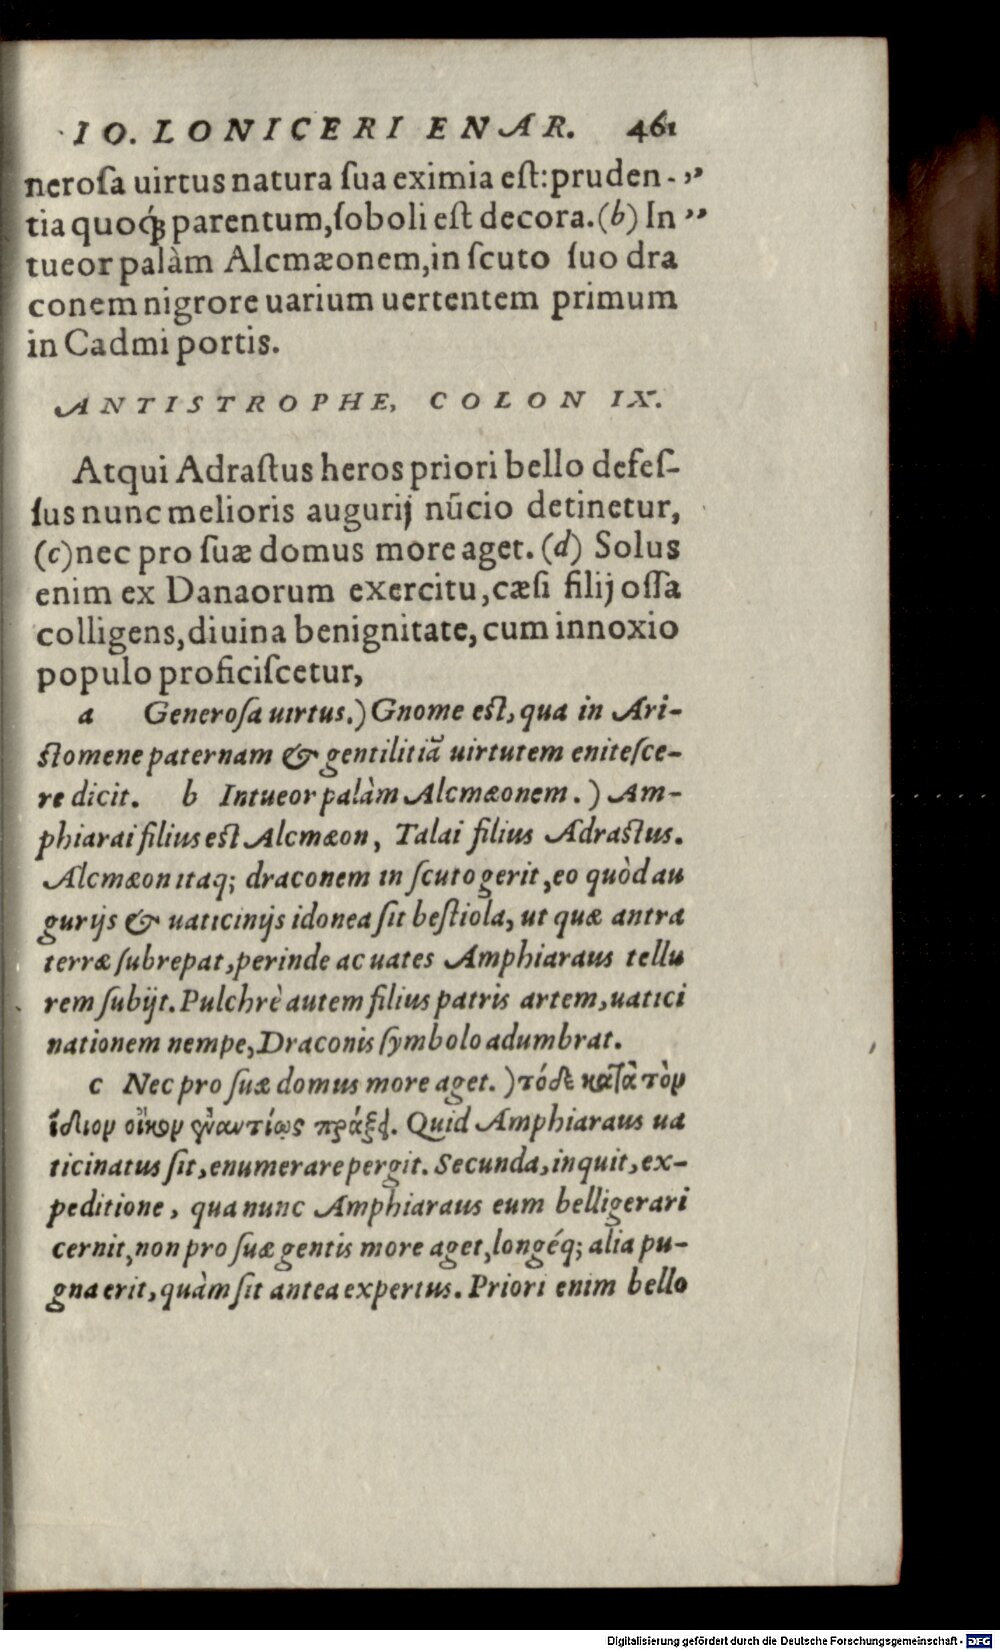 IO. LONICERI ENAR. 461
neroſa uirtus natura ſua eximia eſt: pruden- ,,
tia quoq́ꝫ parentum, ſoboli eſt decora. (b) In ,,
tueor palàm Alcmæonem, in ſcuto ſuo dra
conem nigrore uarium uertentem primum
in Cadmi portis.
ANTISTROPHE, COLON IX.
Atqui Adraſtus heros priori bello defeſ-
ſus nunc melioris augurij nūcio detinetur,
(c) nec pro ſuæ domus more aget. (d) Solus
enim ex Danaorum exercitu, cæſi filij oſſa
colligens, diuina benignitate, cum innoxio
populo proficiſcetur,
a Generoſa uirtus.) Gnome eſt, qua in Ari-
ſtomene paternam & gentilitiā uirtutem eniteſce-
re dicit. b Intueor palàm Alcmæonem.) Am-
phiarai filius eſt Alcmæon, Talai filius Adraſtus.
Alcmæon itaq; draconem in ſcuto gerit, eo quòd au
gurijs & uaticinijs idonea ſit beſtiola, ut quæ antra
terræ ſubrepat, perinde ac uates Amphiaraus tellu
rem ſubijt. Pulchrè autem filius patris artem, uatici
nationem nempe, Draconis ſymbolo adumbrat.
c Nec pro ſuæ domus more aget.) τόδε κατὰ τὸν
ἴδιον οἶκον ἐναντίως πράξει. Quid Amphiaraus ua
ticinatus ſit, enumerare pergit. Secunda, inquit, ex-
peditione, qua nunc Amphiaraus eum belligerari
cernit, non pro ſuæ gentis more aget, longéq; alia pu-
gna erit, quàm ſit antea expertus. Priori enim bello
Digitalisierung gefördert durch die Deutsche Forschungsgemeinschaft - DFG